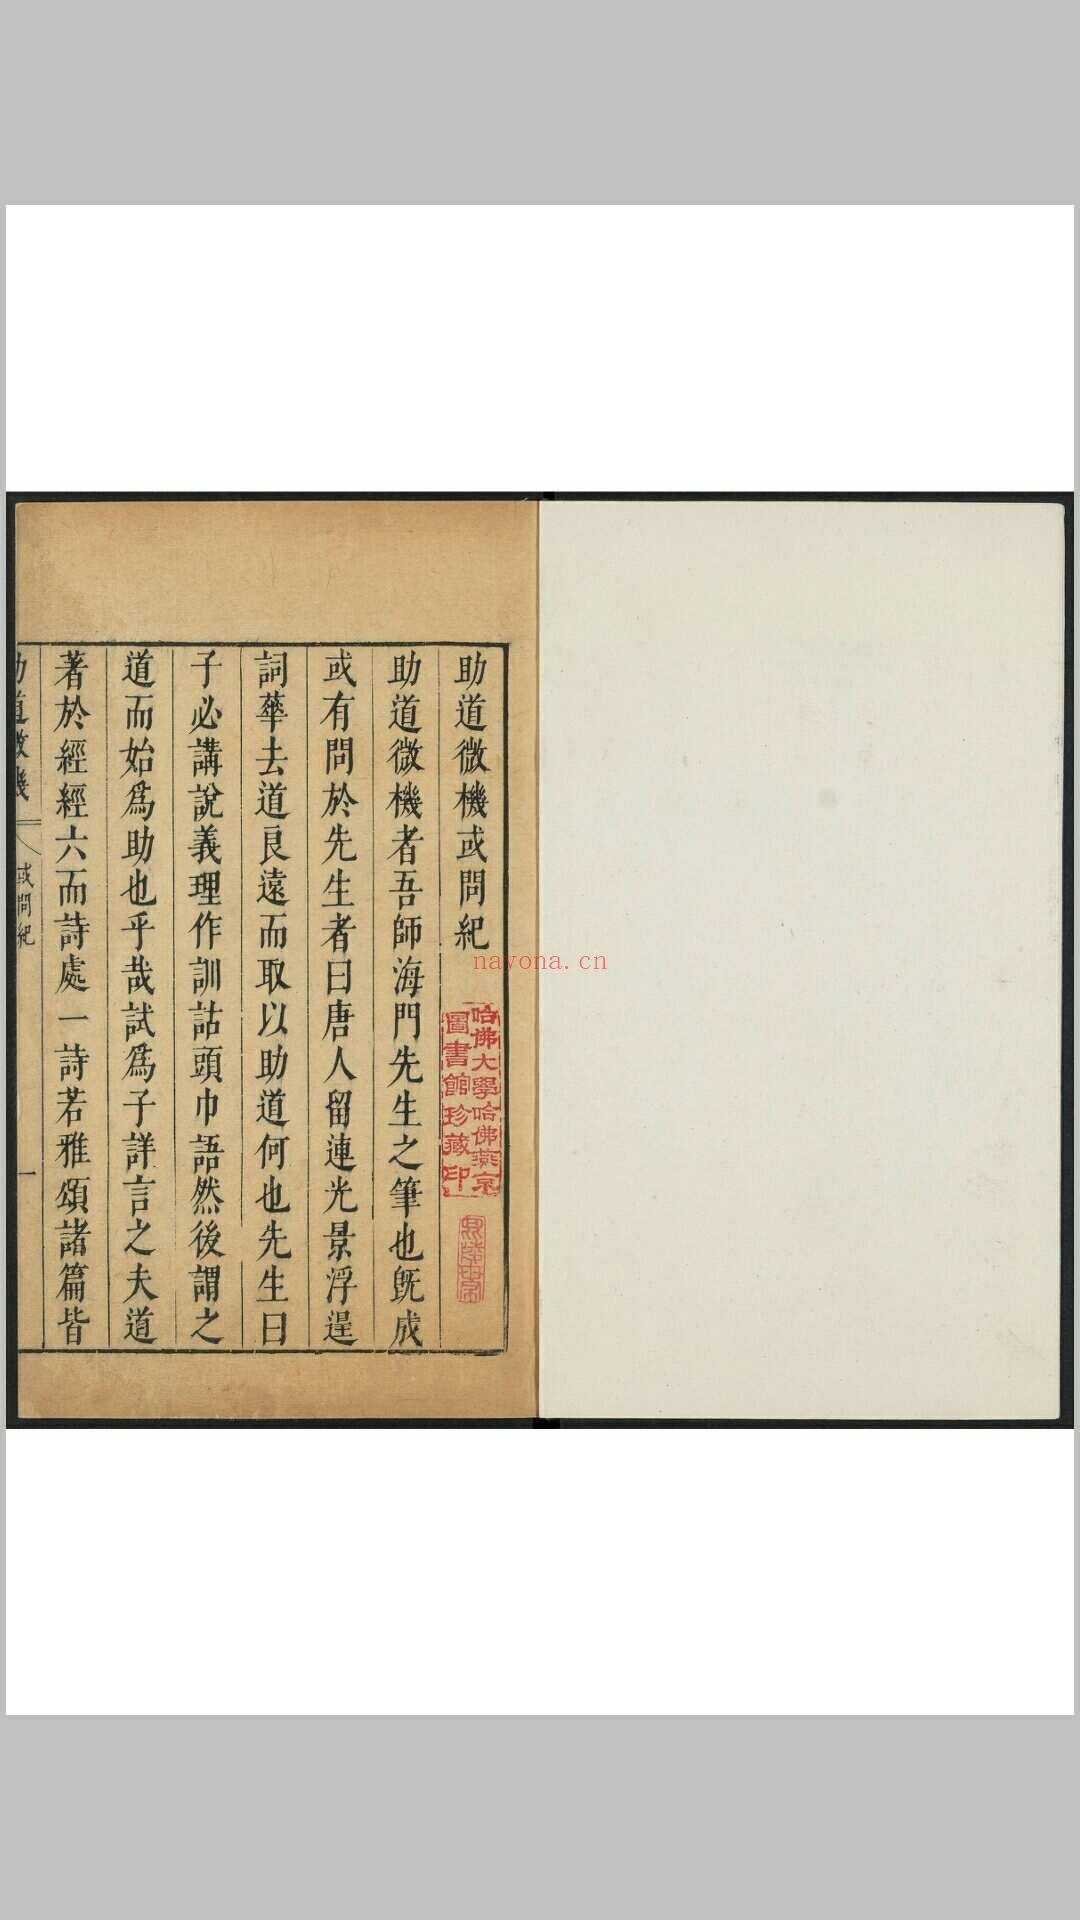 助道微機或問紀
助道微機者吾師海門先生之筆也旣成
或有問於先生者曰唐人留連光景浮逞
詞華去道良遠而取以助道何也先生曰
子必講說義理作訓詁頭巾語然後謂之
道而始爲助也乎哉試爲子詳言之夫道
著於經經六而詩處一詩若雅頌諸篇皆
助道微機
或問紀
一
哈佛大學哈佛燕京
圖書館珍藏印
nayona.cn